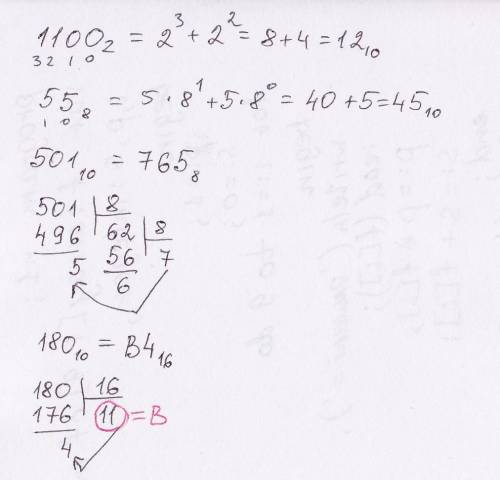 1100₂ = 2³ + 2² = 8 + 4 = 12₁₀
3 2 1 0
55₈ = 5 · 8¹ + 5 · 8⁰ = 40 + 5 = 45₁₀
1 0
501₁₀ = 765₈
501 | 8
496 | 62 | 8
5 56 | 7
6
180₁₀ = B4₁₆
180 | 16
176 | 11 = B
4